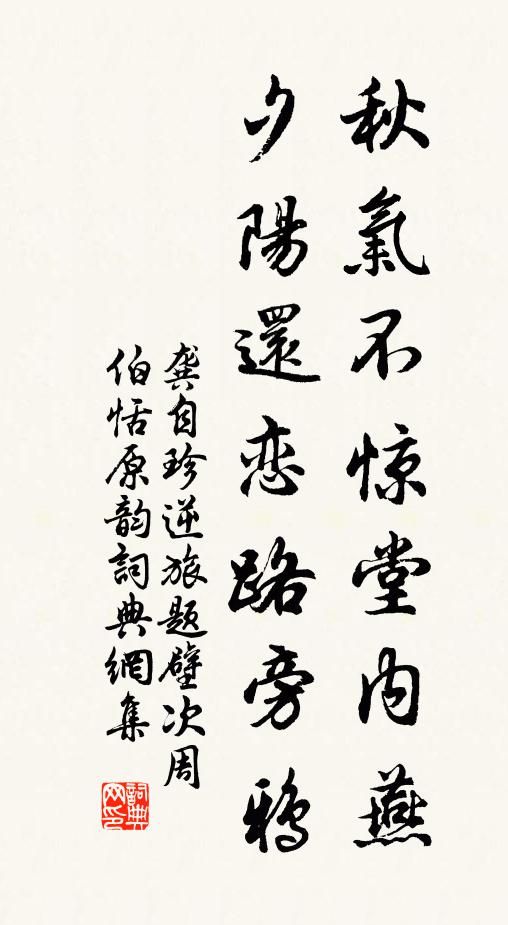 秋氣不惊堂内燕
夕陽還恋路旁鴉
龚自珍逆旅题壁次周
伯恬原韵詞典網集
詞典网印